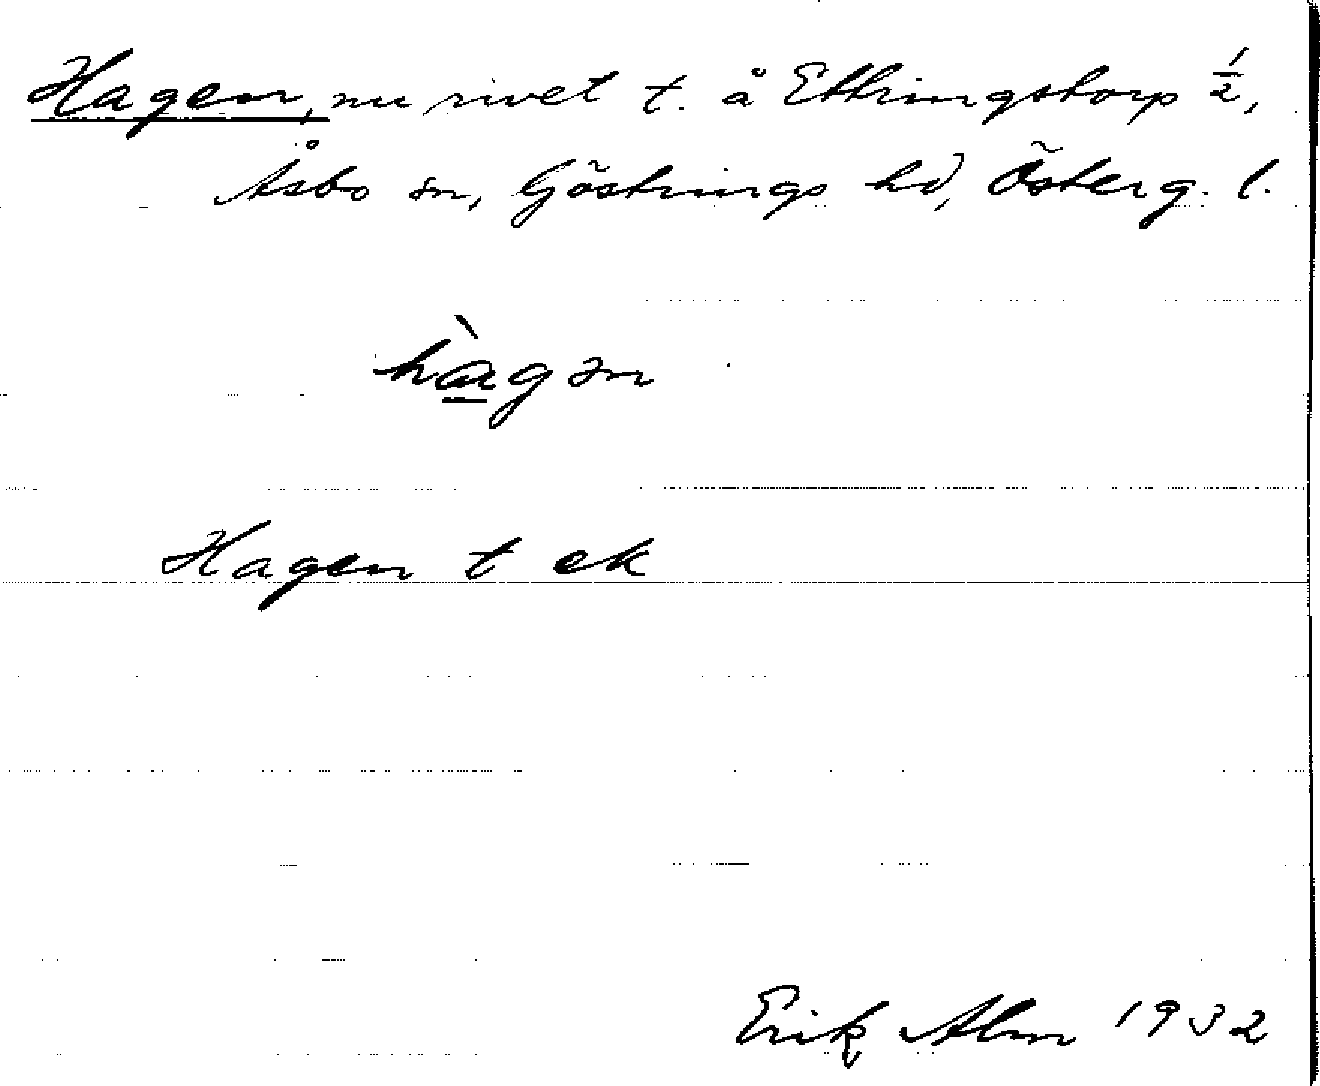 Hagen, nu rivet t. å Ettringstorp ½,
Åsbo sn, Göstrings hd, Österg. l.
hàgən
Hagen t ek
Erik Alm 1932